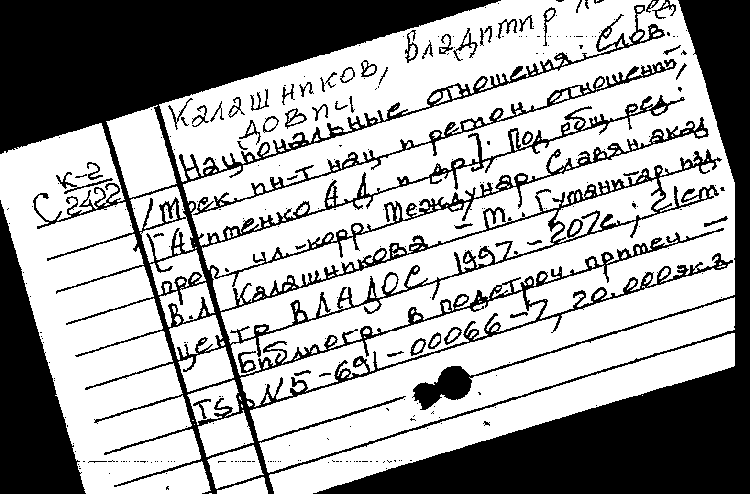 Калашников, Владимир ред.
дович
Национальные отношения: Слов.
/ Моск. ин-т нац. и регион. отношений;
С К-2
2422
[Акитенко А.Д. и др.]; Под общ. ред.:
проф., чл.-корр. Междунар. Славян. акад
В.Л. Калашникова. - М.: Гуманитар. изд.
центр ВЛАДОС, 1997. - 207с.; 21см. -
Библиогр. в подстроч. примеч. -
ISBN 5-691-00066-7, 20.000экз